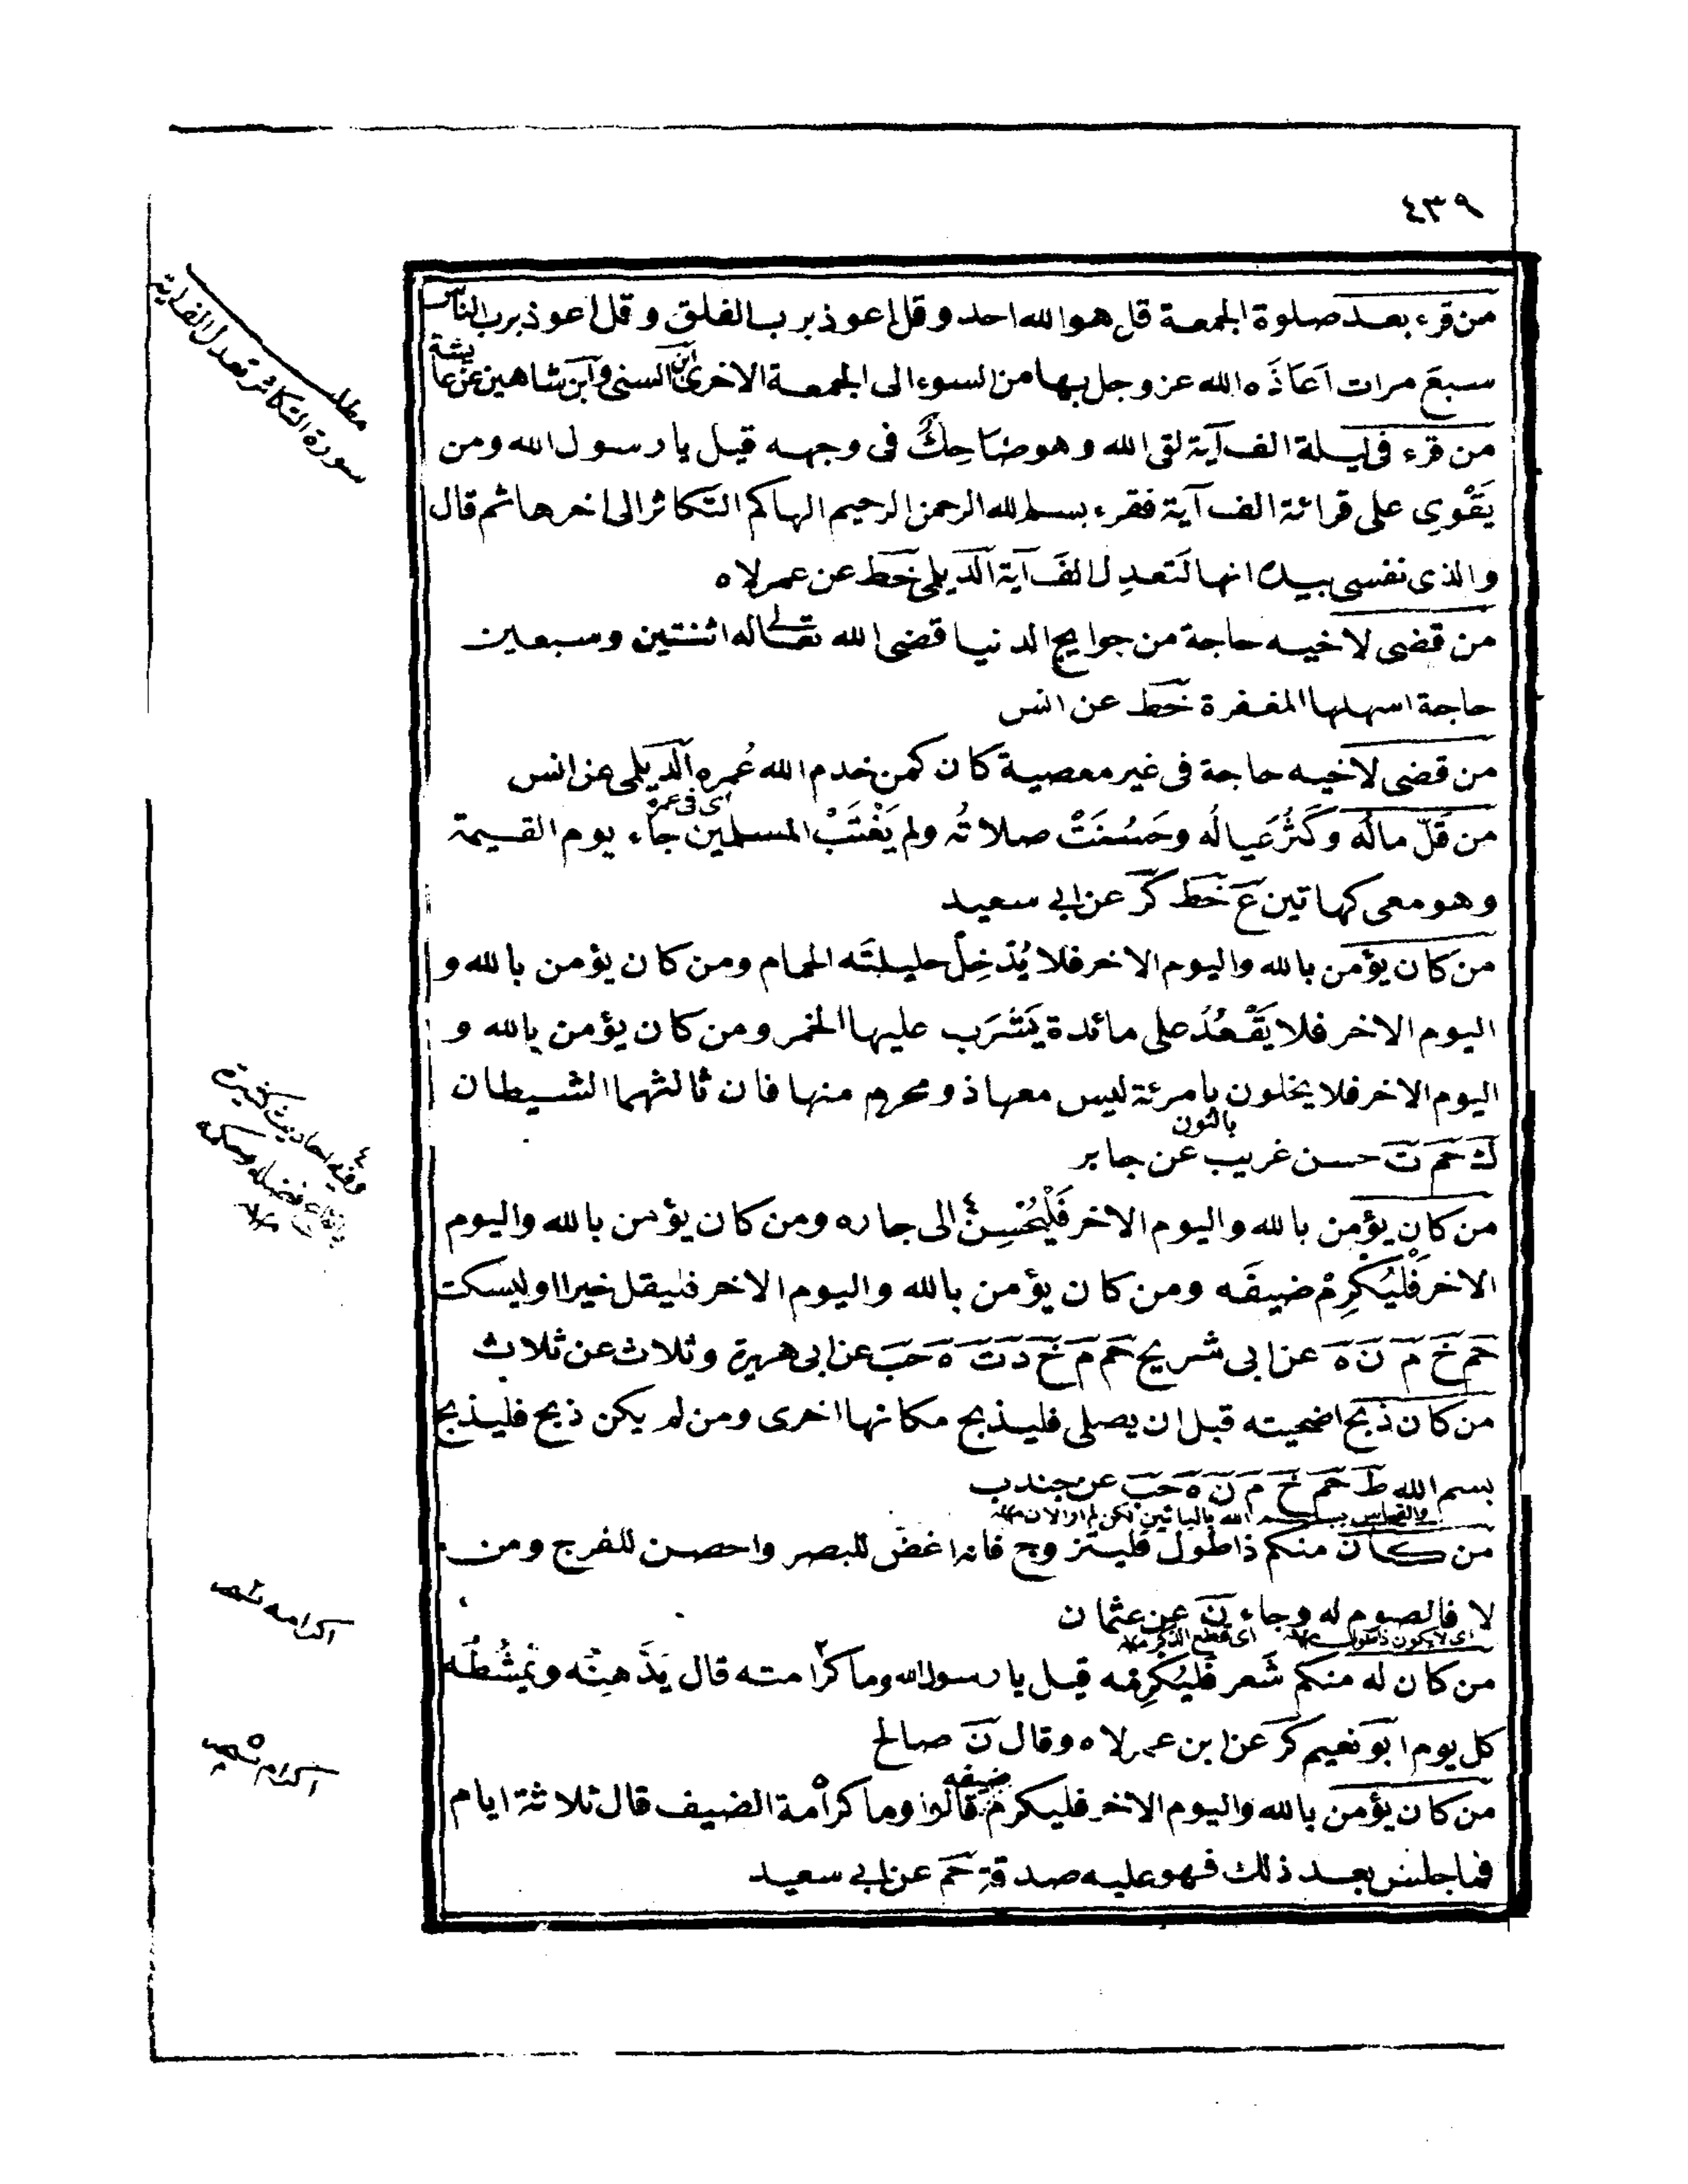 ٤٣٩
من قرء بعد صلوة الجمعة قل هو الله احد وقل اعوذ برب الفلق وقل اعوذ برب الناس
سبعَ مرات اَعَاذَه الله عز وجل بها من السوء الى الجمعة الاخرى ابن السنى وابن شاهين عن عايشة
من قرء فى ليلة الف آية لقى الله وهو ضَاحِكٌ فى وجهه قيل يا رسول الله ومن
يَقْوِى على قرائة الف آية فقرء بسم الله الرحمن الرحيم الهاكم التكاثر الى اخرها ثم قال
والذى نفسى بيده انها لَتَعدِل الفَ آية الديلمى خط عن عمر لاه
من قضى لاخيه حاجة من جوايج الدنيا قضى الله تعالى له اثنتين وسبعين
حاجة اسهلها المغفرة خط عن انس
من قضى لاخيه حاجة فى غير معصية كان كمن خدم الله عُمره الديلمى عن انس
اى فى عمره
من قَلّ مالُه وكَثُرُ عَيالُه وحَسُنَتْ صلاتُه ولم يَغْتَبْ المسلمين جاء يوم القيمة
وهو معى كهاتين ع خط كر عن ابى سعيد
من كان يؤمن بالله واليوم الاخر فلا يُدْخِلْ حليلتَه الحمام ومن كان يؤمن بالله و
اليوم الاخر فلا يَقْعُدَ على مائدة يَشْرَب عليها الخمر ومن كان يؤمن بالله و
اليوم الاخر فلا يخلون بامرئة ليس معها ذو محرم منها فان ثالثهما الشيطان
بالنون
ك حم ت حسن غريب عن جابر
من كان يؤمن بالله واليوم الاخر فَلْيُحْسِنْ٤ الى جاره ومن كان يؤمن بالله واليوم
الاخر فَلْيُكْرِمْ ضيفَه ومن كان يؤمن بالله واليوم الاخر فليقل خيرا او ليسكت
حم خ م ن ه عن ابى شريح حم م خ د ت ه حب عن ابى هريرة وثلاث عن ثلاث
من كان ذبح اضحيته قبل ان يصلى فليذبح مكانها اخرى ومن لم يكن ذبح فليذبح
بسم الله ط حم خ م ن ه حب عن جندب
من كان منكم ذا طول فليتزوج فانه اغض للبصر واحصن للفرج ومن
لا فالصوم له وجاء ن عن عثمان
اى لا يكون ذا طول اى قطع الذكر
من كان له منكم شَعر فليُكرِمْه قيل يا رسول الله وما كرامته قال يَدَّهِنُه ويَمْشُطُه
كل يوم ابو نعيم كر عن ابن عمر لاه وقال ن صالح
من كان يؤمن بالله واليوم الاخر فليكرم ضيفه قالوا وما كرامة الضيف قال ثلاثة ايام
فما جلس بعد ذلك فهو عليه صدقة حم عن ابى سعيد
مطلب
سورة التكاثر تعدل الف اية
٤ وفيه احاديث كثيرة